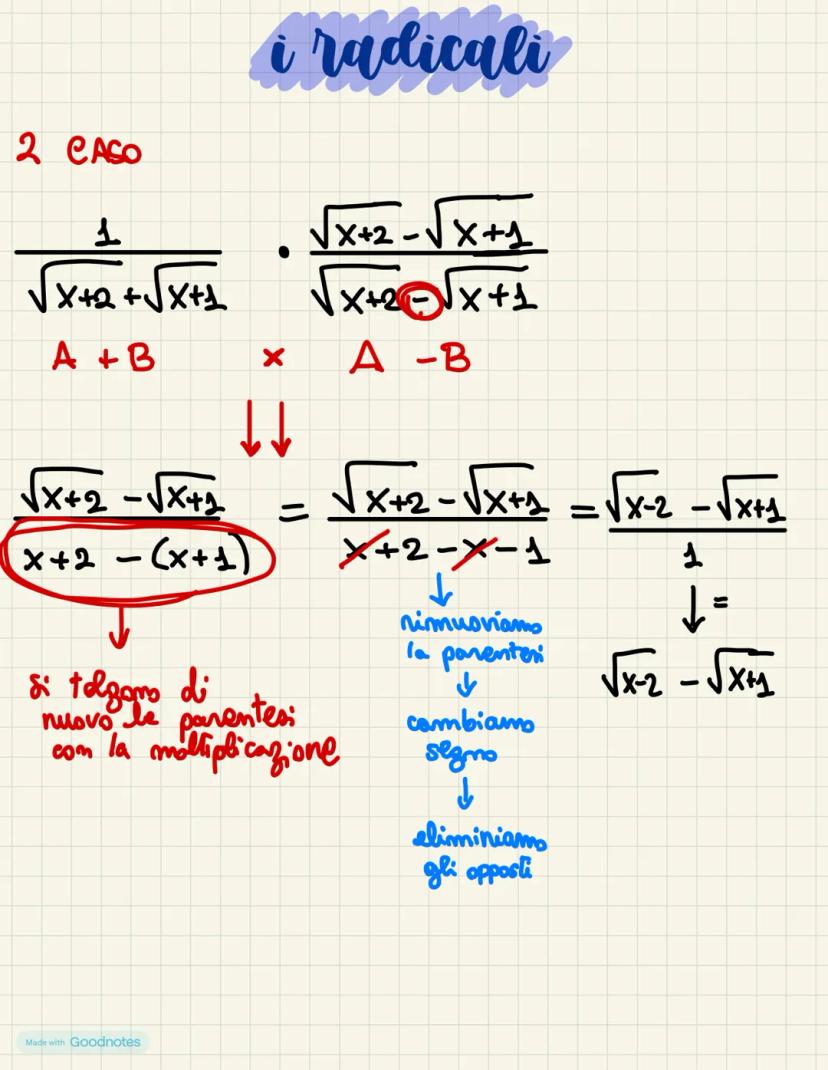 i radicali
2 CASO
1 / (√x+2 + √x+1) · (√x+2 - √x+1) / (√x+2 - √x+1)
A + B x A - B
(√x+2 - √x+1) / (x+2 - (x+1)) = (√x+2 - √x+1) / (x+2 - x - 1) = (√x-2 - √x+1) / 1
=
√x-2 - √x+1
si tolgono di
nuovo le parentesi
con la moltiplicazione
rimuoviamo
la parentesi
cambiamo
segno
eliminiamo
gli opposti
Made with Goodnotes